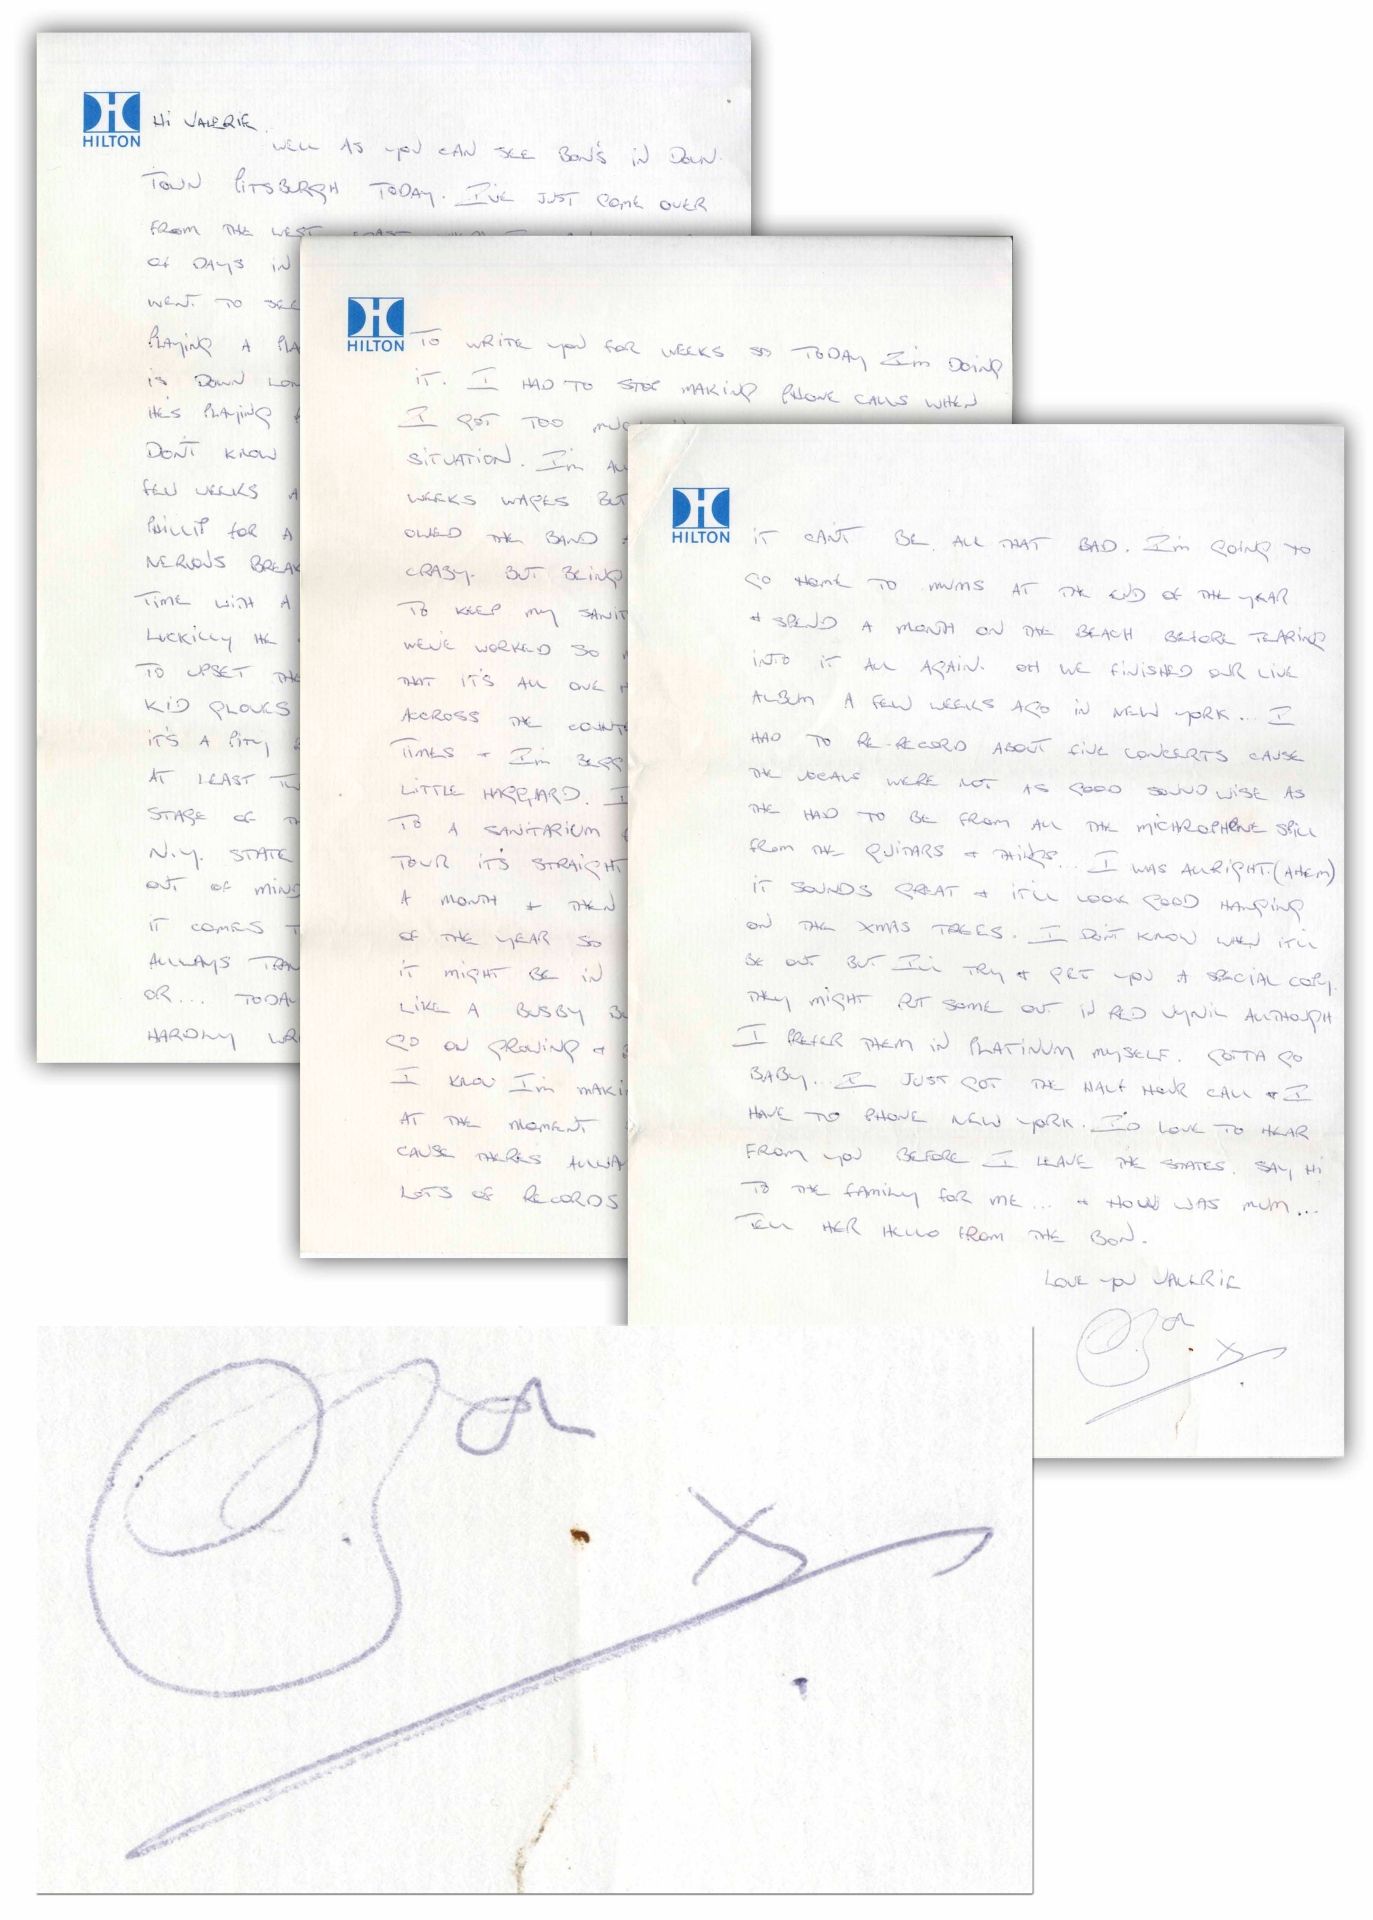 HILTON
HI VALERIE.
WELL AS YOU CAN SEE BON'S IN DOWN
TOWN PITSBURGH TODAY. I'VE JUST COME OVER
FROM THE WEST COAST
OF DAYS IN
WENT TO SEE
PLAYING A
IS DOWN
HE'S PLAYING
DON'T KNOW
FEW WEEKS
PHILLIP FOR A
NERVOUS BREAK
TIME WITH A
LUCKILLY HE
TO UPSET THE
KID GLOVES
IT'S A PITY
AT LEAST
STAGE OF
N.Y. STATE
OUT OF MIND
IT COMES
ALLWAYS
OR... TODAY
HARDLY
HILTON
TO WRITE YOU FOR WEEKS SO TODAY I'M DOING
IT. I HAD TO STOP MAKING PHONE CALLS WHEN
I GOT TOO
SITUATION. I'M
WEEKS WAGES BUT
OWED THE BAND
CRABY. BUT BEING
TO KEEP MY
WE'VE WORKED SO
THAT IT'S ALL ONE
ACROSS THE
TIMES + I'M
LITTLE HAGGARD. I
TO A SANITARIUM
TOUR IT'S STRAIGHT
A MONTH + THEN
OF THE YEAR SO
IT MIGHT BE IN
LIKE A BUSBY
GO ON GROWING +
I KNOW I'M
AT THE MOMENT
CAUSE THERES
LOTS OF RECORDS
HILTON
IT CAN'T BE ALL THAT BAD. I'M GOING TO
GO HOME TO MUMS AT THE END OF THE YEAR
+ SPEND A MONTH ON THE BEACH BEFORE TEARING
INTO IT ALL AGAIN. OH WE FINISHED OUR LIVE
ALBUM A FEW WEEKS AGO IN NEW YORK... I
HAD TO RE-RECORD ABOUT FIVE CONCERTS CAUSE
THE VOCALS WERE NOT AS GOOD SOUNDWISE AS
THE HAD TO BE FROM ALL THE MICHROPHONE SPILL
FROM THE GUITARS + THINGS... I WAS ALLRIGHT. (AHEM)
IT SOUNDS GREAT + IT'LL LOOK GOOD HANGING
ON THE XMAS TREES. I DON'T KNOW WHEN IT'LL
BE OUT BUT I'LL TRY + GET YOU A SPECIAL COPY.
THEY MIGHT PUT SOME OUT IN RED VYNIL ALTHOUGH
I PREFER THEM IN PLATINUM MYSELF. GOTTA GO
BABY... I JUST GOT THE HALF HOUR CALL + I
HAVE TO PHONE NEW YORK. I'D LOVE TO HEAR
FROM YOU BEFORE I LEAVE THE STATES. SAY HI
TO THE FAMILY FOR ME... + HOW WAS MUM...
TELL HER HELLO FROM THE BON.
LOVE YOU VALERIE
Bon
X
Bon
X